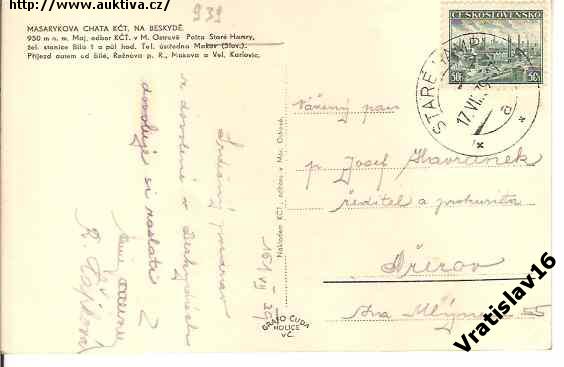 http://www.auktiva.cz/
939
MASARYKOVA CHATA KČT, NA BESKYDĚ.
950 m n. m. Maj. odbor KČT. v M. Ostravě Pošta Staré Hamry,
žel. stanice Bílá 1 a půl hod. Tel. ústředna Makov (Slov.)
Příjezd autem od Bílé, Rožnova p. R., Makova a Vel. Karlovic.
ČESKOSLOVENSKO
50h 50h
STARÉ HAMRY
17.VII.39
a
Srdečný pozdrav
z dovolené v Beskydách
dovoluje si zaslati
16/VII 39
Nákladem KČT, odboru v Mor. Ostravě.
GRAFO ČUDA
HOLICE
V Č.
Vážený pan
p. Josef Havránek
ředitel a prokurista
Přerov
Na Mlýnici 55
Vratislav16